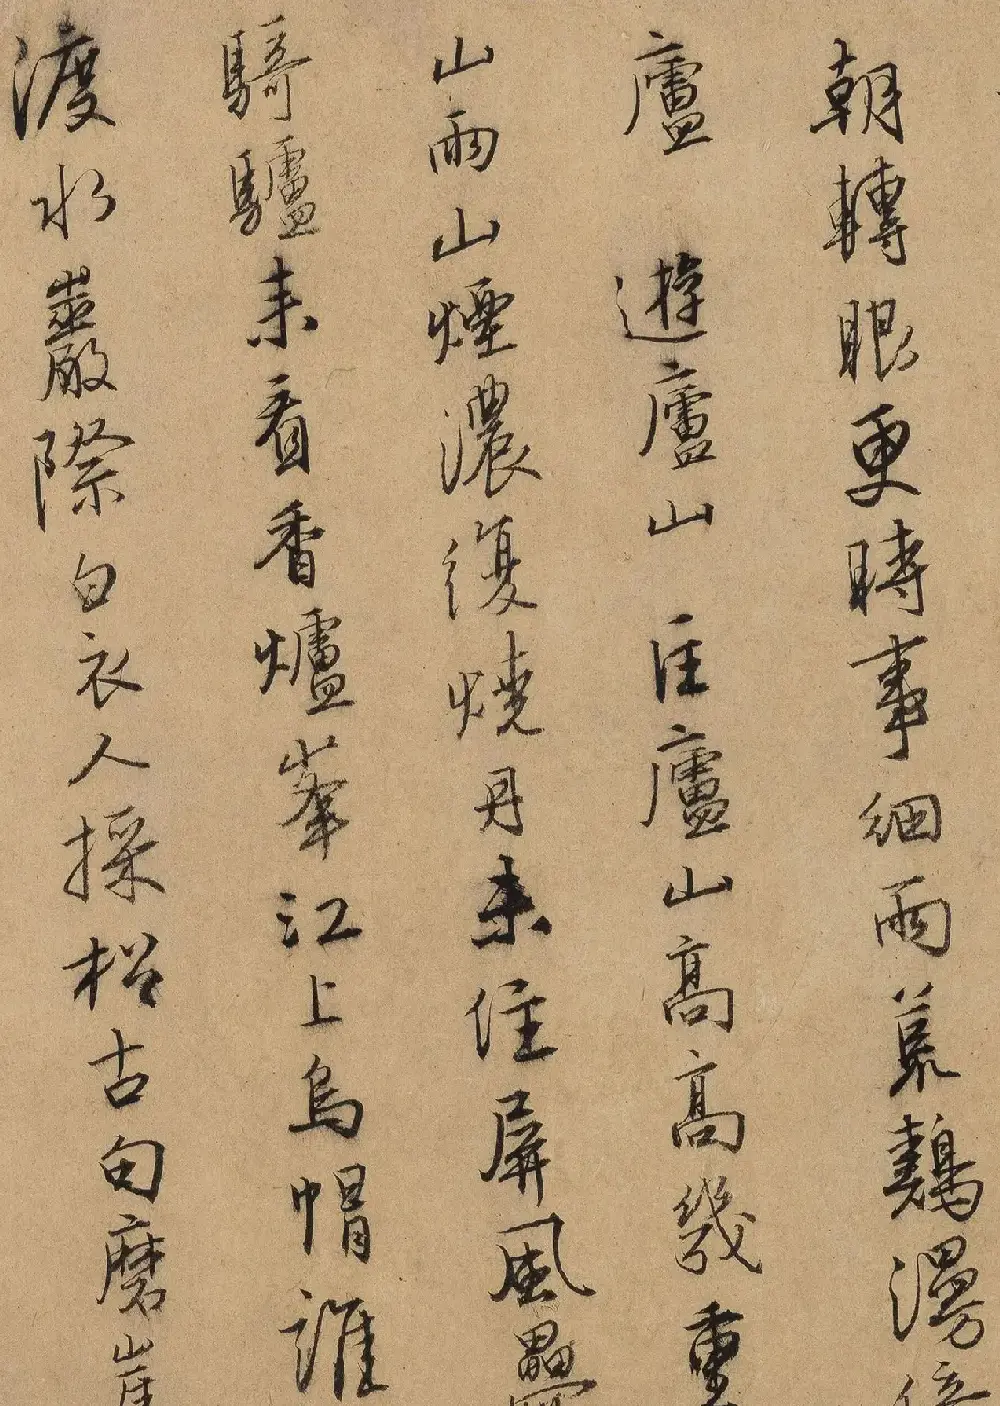 朝轉眼更時事細雨荒鷄漫
廬 遊廬山 匡廬山高高幾重
山雨山煙濃復燒丹来住屏風疊
騎驢来看香爐峯江上烏帽誰
渡水巖際白衣人採柗古句磨崖